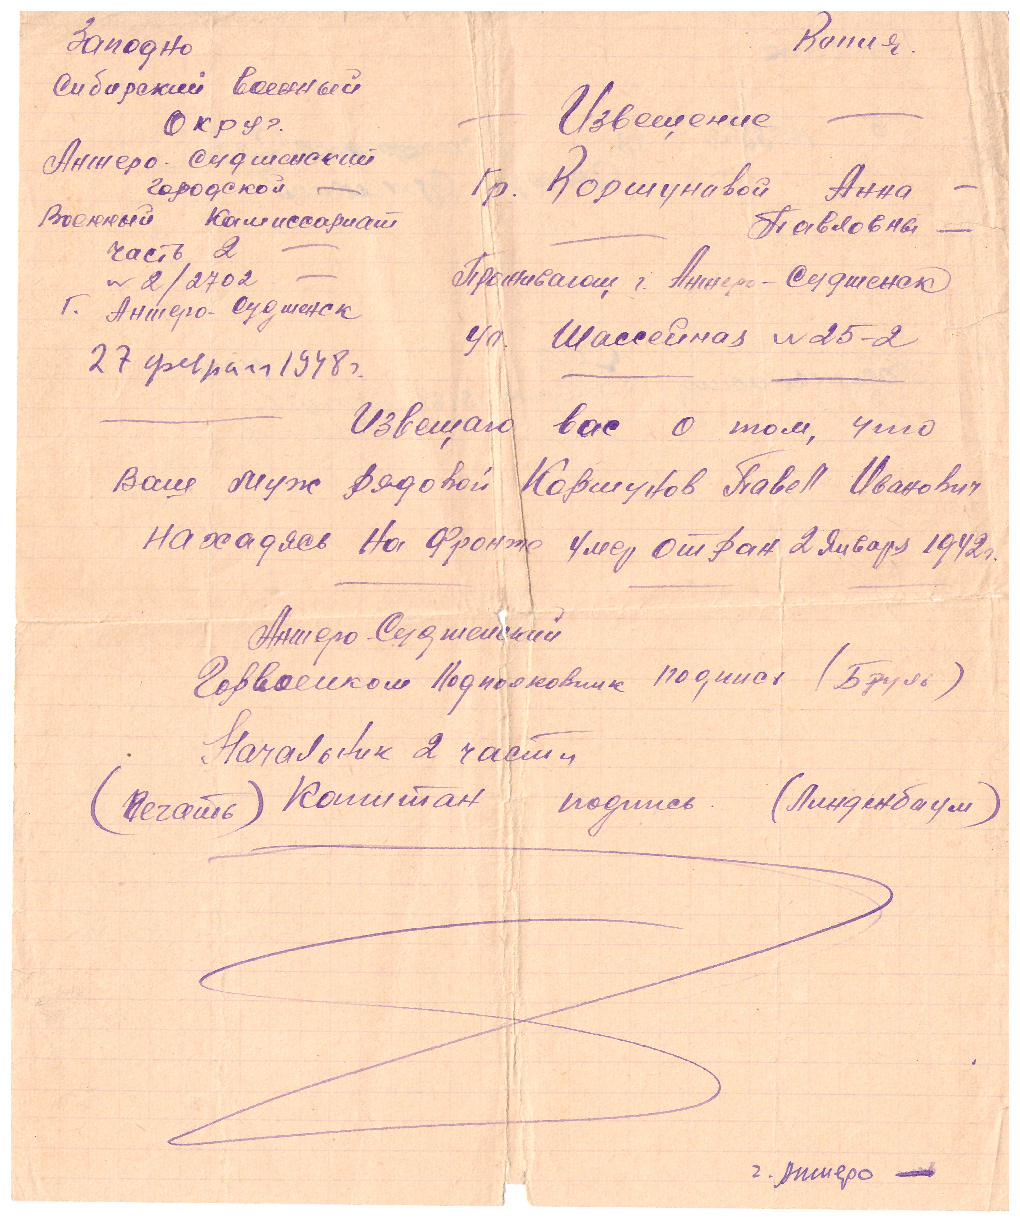 Западно
Сибирский военный
Округ.
Анжеро-Судженский
городской
Военный Камиссариат
часть 2
№ 2/2702
г. Анжеро-Судженск
27 февраля 1948 г.
Копия.
Извещение
Гр. Коршунавой Анна
Павловны
Проживающ. г. Анжеро-Судженск
ул. Шассейная № 25-2
Извещаю вас о том, что
Ваш муж рядовой Коршунов Павел Иванович
нахадясь на Фронте умер от ран 2 января 1942 г.
Анжеро-Судженский
Горвоенком Подполковник подпись (Бруль)
Начальник 2 части
(Печать) Капитан подпись (Линденбаум)
г. Анжеро